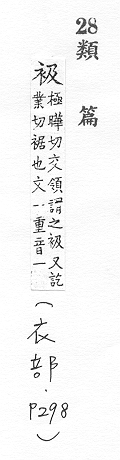 28
類篇
衱極曄切交領謂之衱又訖
業切裾也文一重音一
(衣部.P298)